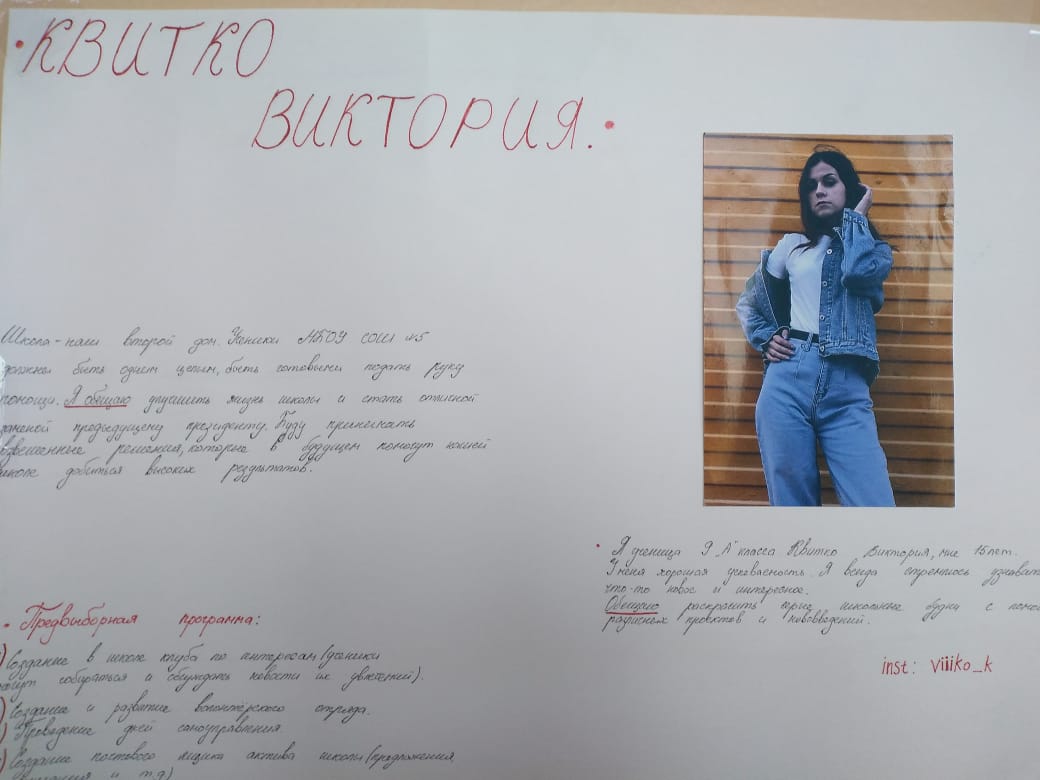 • КВИТКО
ВИКТОРИЯ. •
Школа - наш второй дом. Ученики МБОУ СОШ №5
должны быть одним целым, быть готовыми подать руку
помощи. Я обещаю улучшить жизнь школы и стать отличной
заменой предыдущему президенту. Буду принимать
взвешенные решения, которые в будущем помогут нашей
школе добиться высоких результатов.
• Я ученица 9 "А" класса Квитко Виктория, мне 15 лет.
У меня хорошая успеваемость. Я всегда стремлюсь узнавать
что-то новое и интересное.
Обещаю раскрасить серые школьные будни с помо
различных проектов и нововведений.
inst: viiiko_k
• Предвыборная программа:
) Создание в школе клуба по интересам (ученики
могут собираться и обсуждать новости их увлечений).
) Создание и развитие волонтёрского отряда.
) Проведение дней самоуправления.
) Создание почтового ящика актива школы (предложения
и т.д)